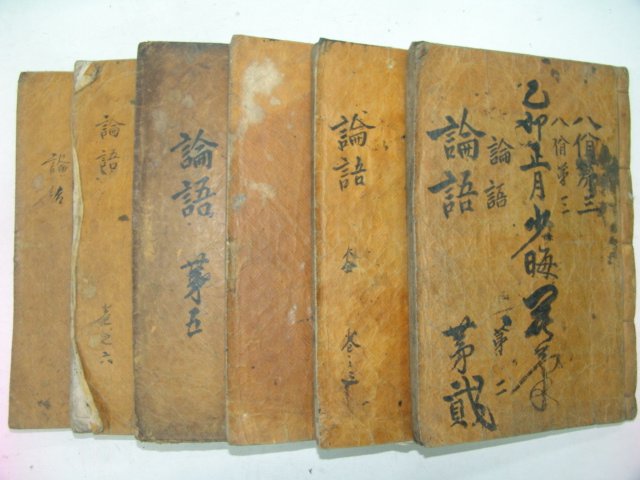 八佾第三
八佾第三
乙卯正月少晦
論語
第二
論語
第貳
論語
卷之三
論語
第五
論語
卷之六
論語